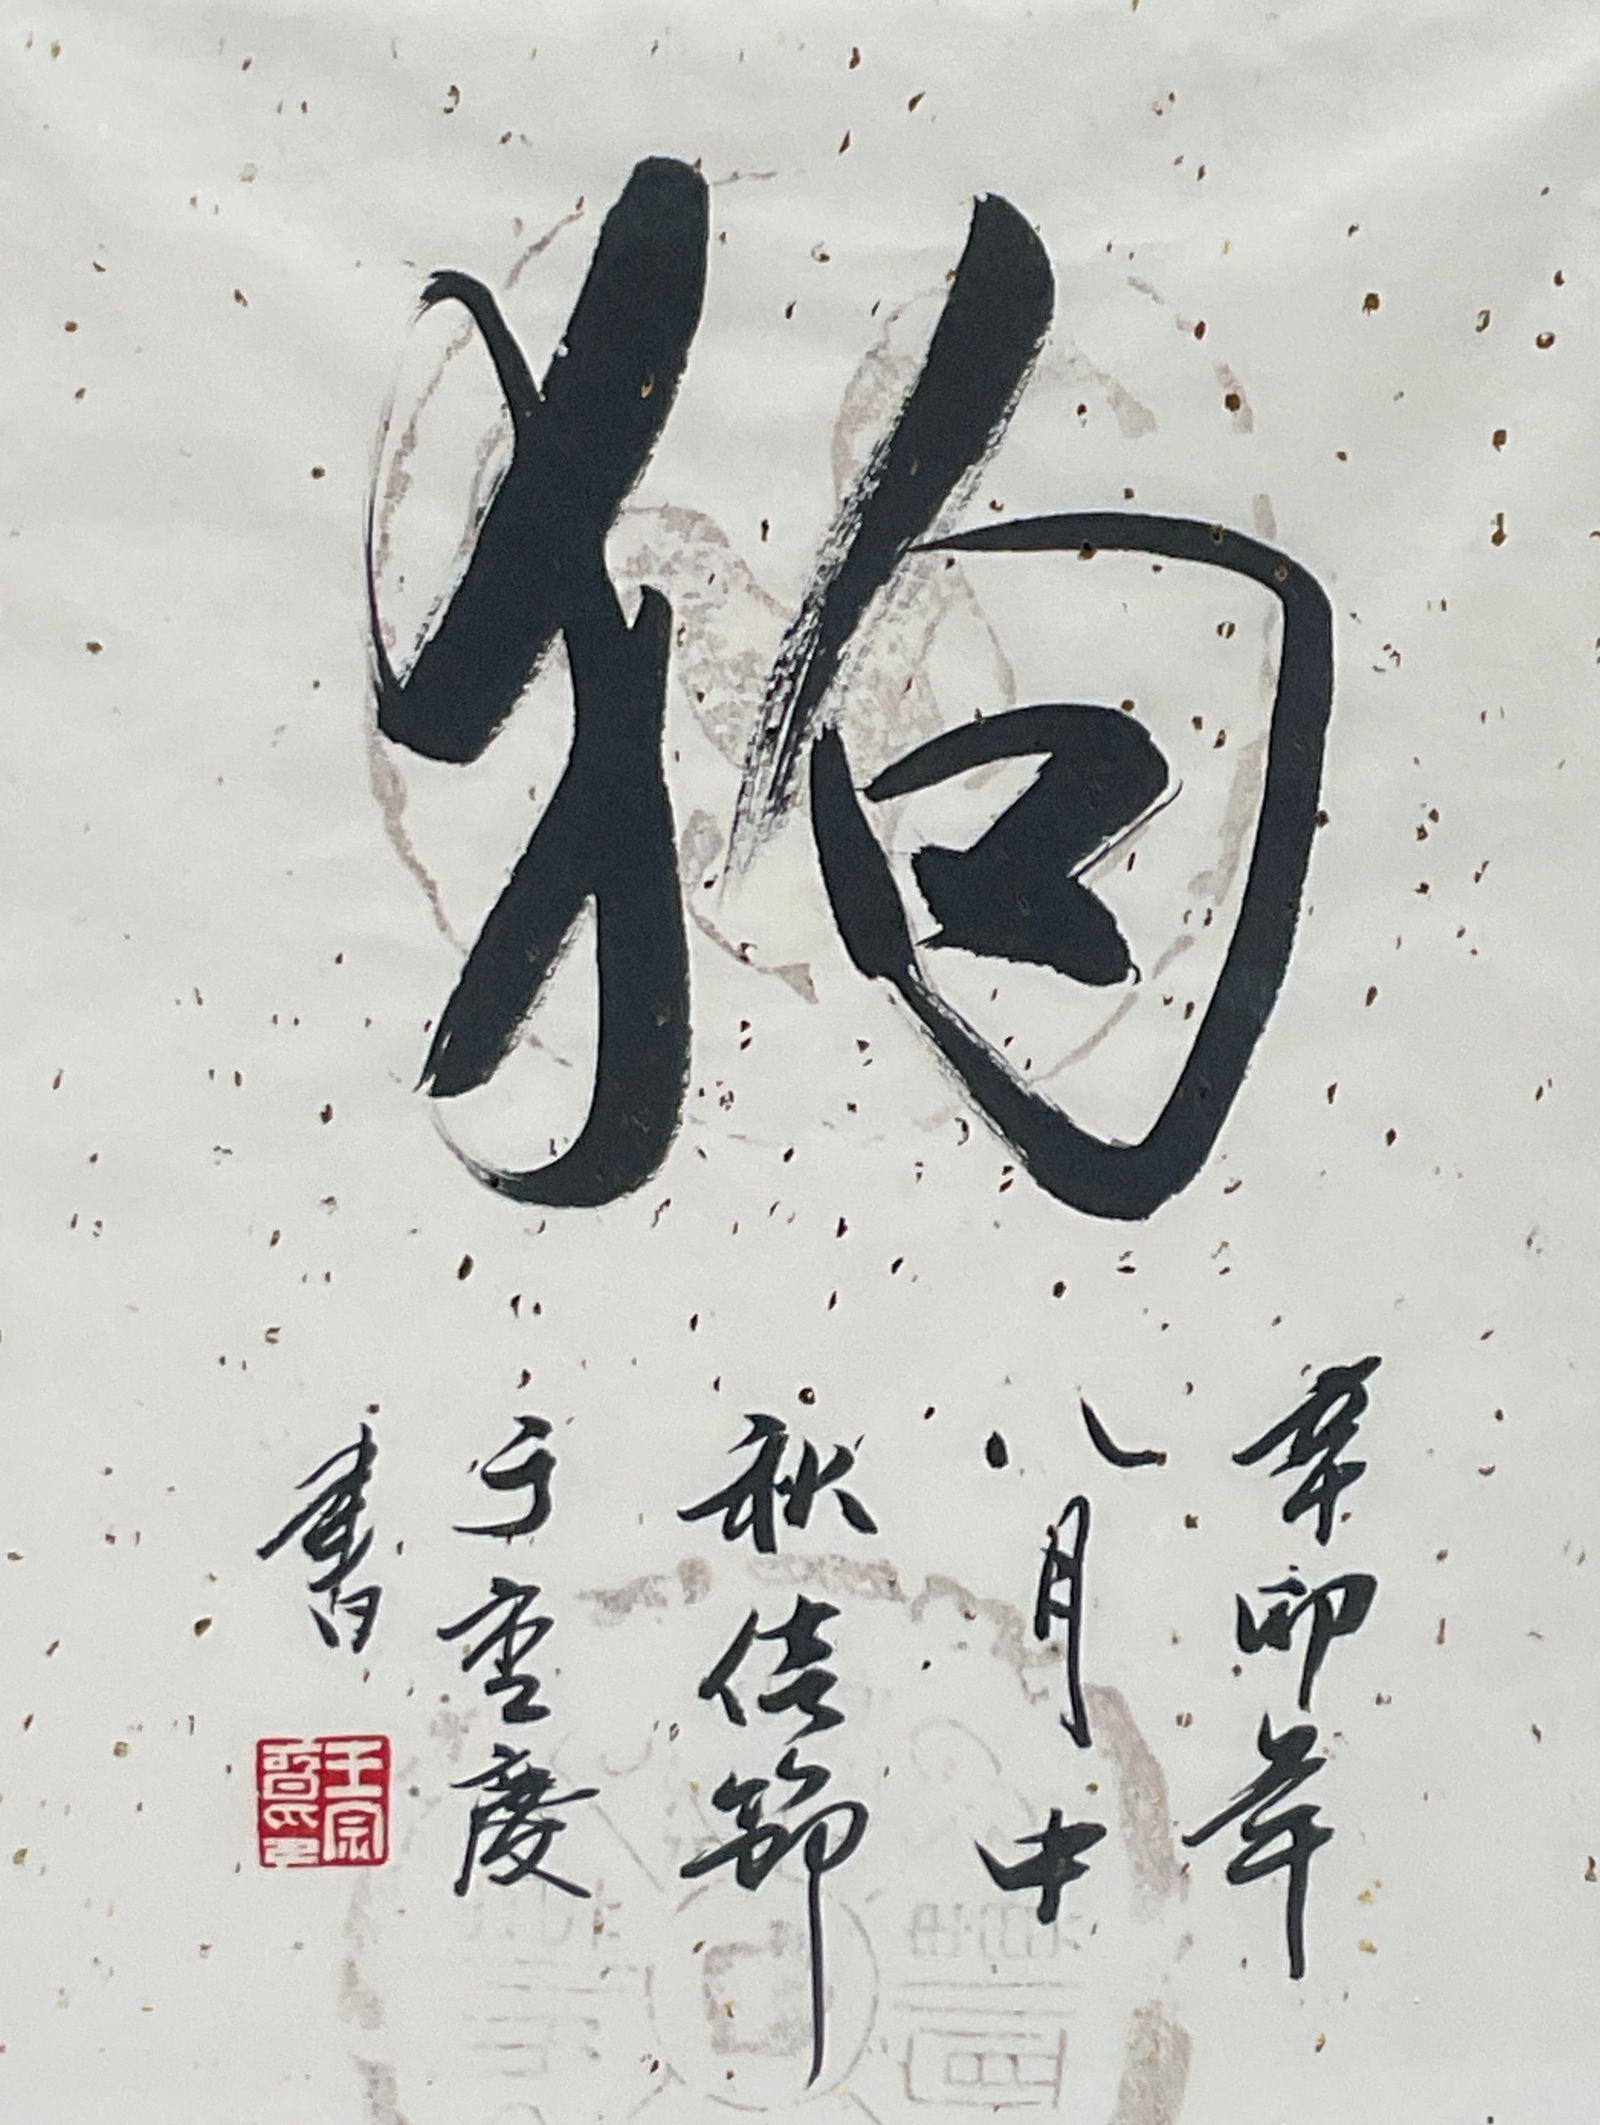 狗
辛卯年
八月中
秋佳節
于重慶
書